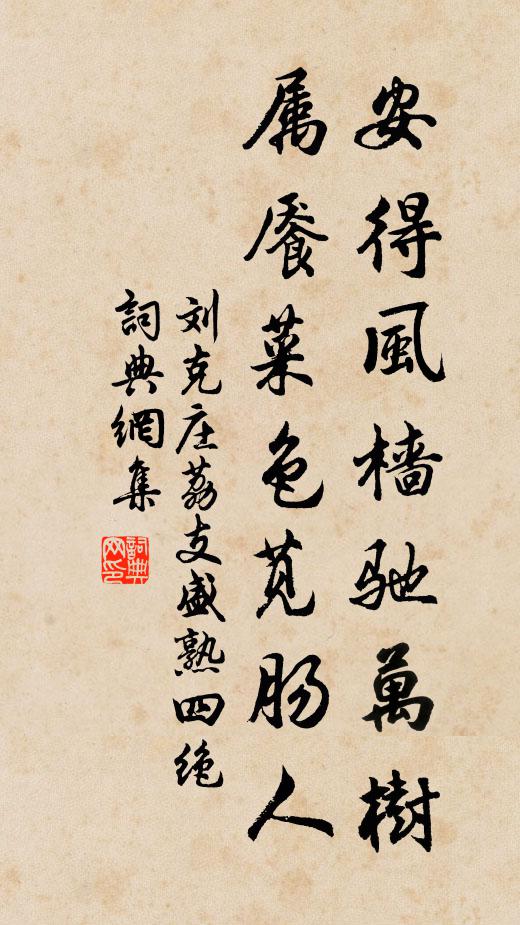 安得風檣馳萬樹
属餍菜色苋肠人
刘克庄荔支盛熟四绝
詞典網集
詞典网印